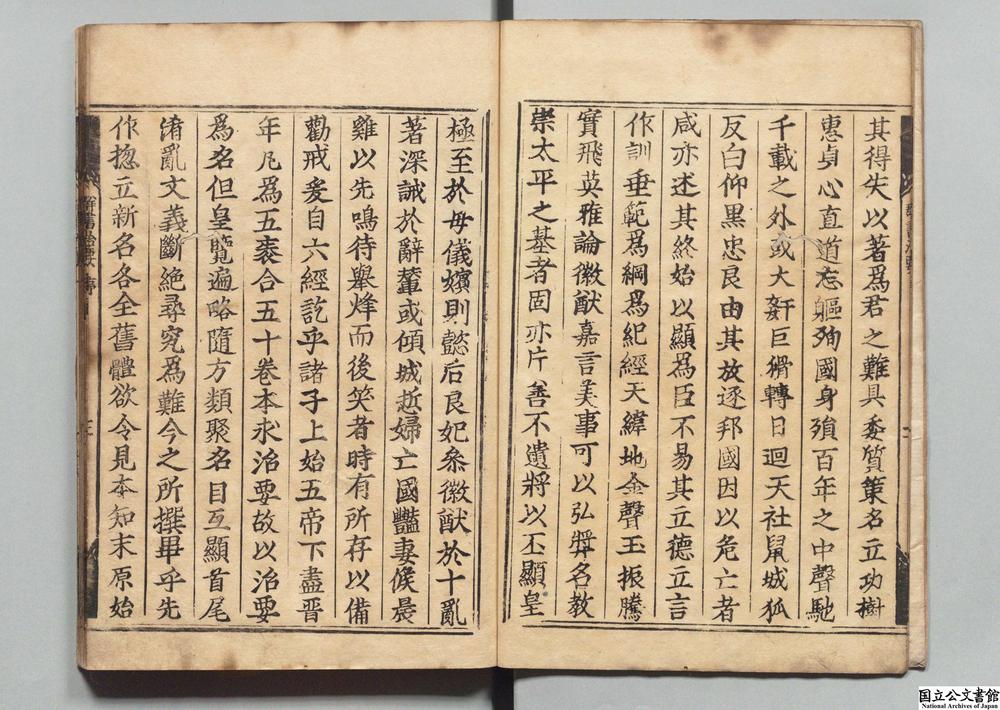 其得失以著爲君之難具委質策名立功樹
惠貞心直道忘軀殉國身殞百年之中聲馳
千載之外或大奸巨猾轉日迴天社鼠城狐
反白仰黒忠良由其放逐邦國因以危亡者
咸亦述其終始以顯爲臣不易其立德立言
作訓垂範爲綱爲紀經天緯地金聲玉振騰
實飛英雅論徽猷嘉言美事可以弘奬名教
崇太平之基者固亦片善不遺將以丕顯皇
極至於母儀嬪則懿后良妃叅徽猷於十亂
著深誡於辭輦或傾城悊婦亡國豔妻候晨
雞以先鳴待舉烽而後笑者時有所存以備
勸戒爰自六經訖乎諸子上始五帝下盡晋
年凡爲五袠合五十卷本求治要故以治要
爲名但皇覽遍略隨方類聚名目互顯首尾
淆亂文義斷絶尋究爲難今之所撰異乎先
作揔立新名各全舊體欲令見本知末原始
群書治要序
二
三
国立公文書館
National Archives of Japan